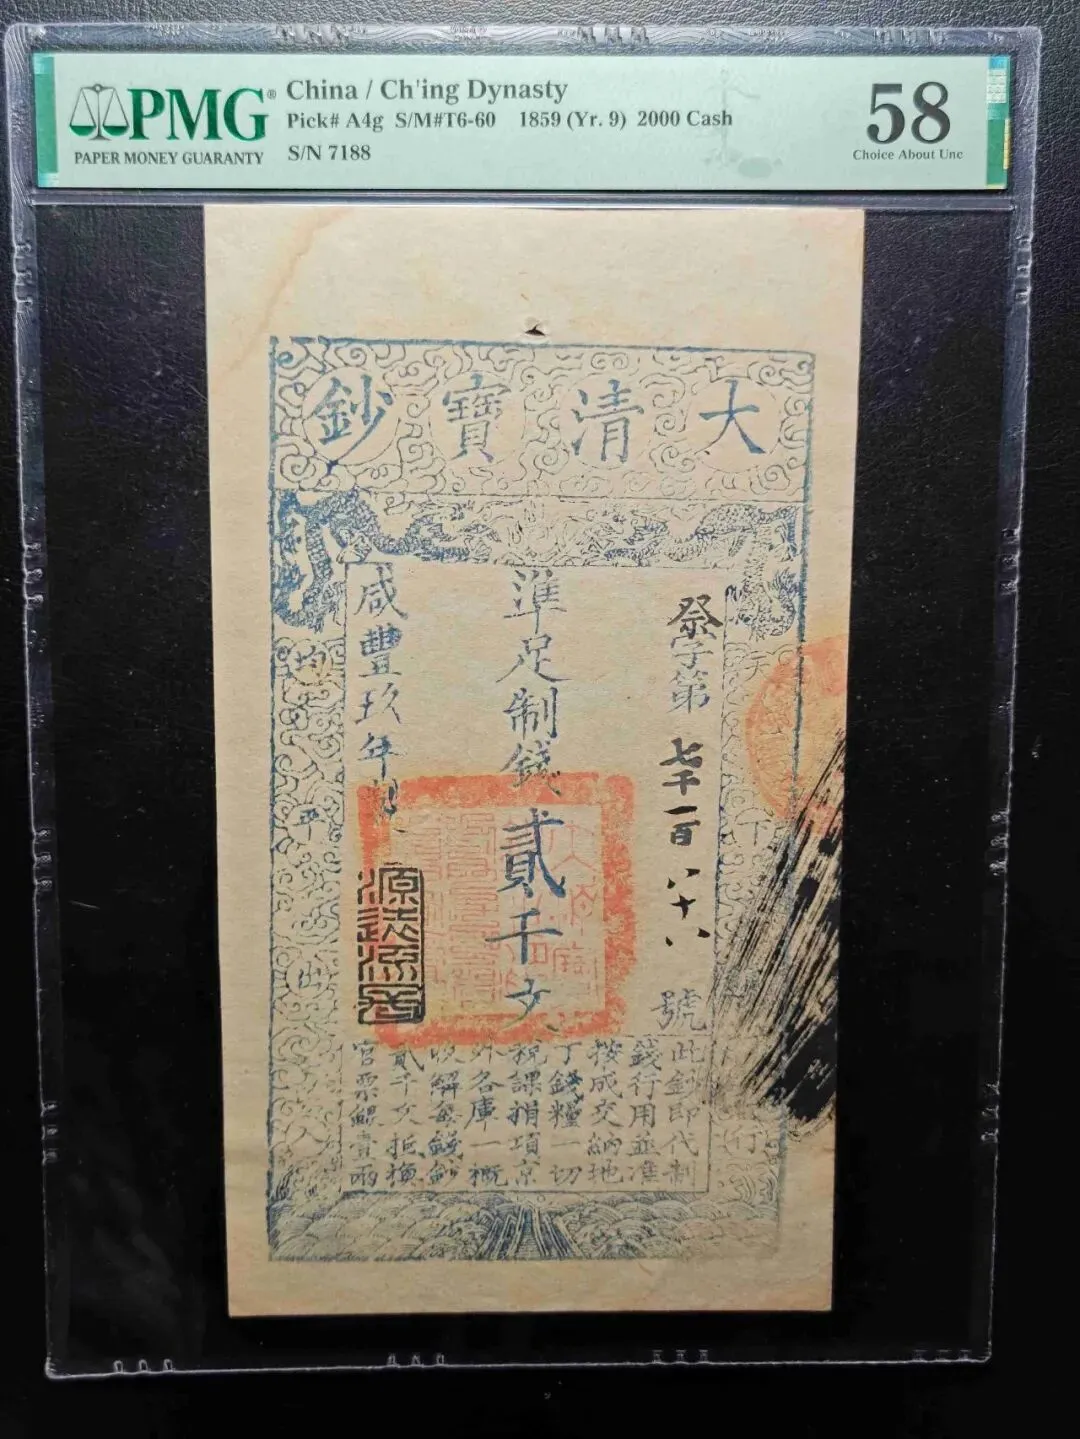 PMG®
PAPER MONEY GUARANTY
China / Ch'ing Dynasty
Pick# A4g S/M#T6-60 1859 (Yr. 9) 2000 Cash
S/N 7188
58
Choice About Unc
大清寶鈔
祭字第七千一百八十八號
準足制錢貳千文
咸豐玖年
天下
行
均平
此鈔即代制
錢行用並准
按成交納地
丁錢糧一切
稅課捐項京
外各庫一概
收解每錢鈔
貳千文抵換
官票銀壹兩
源遠流長